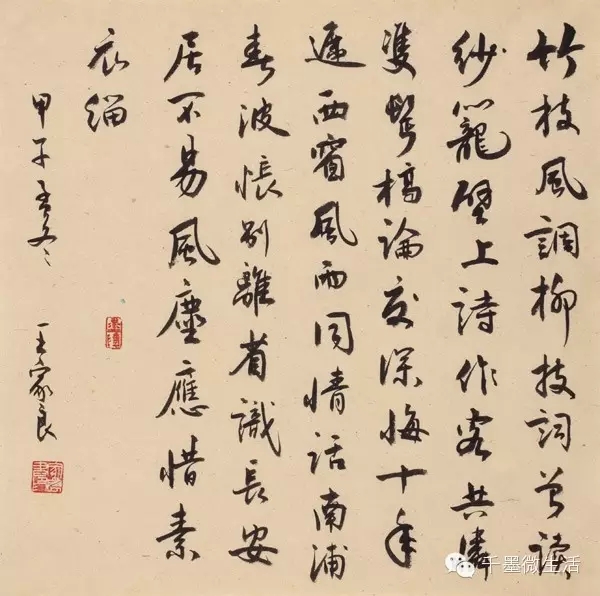 竹枝風調柳枝詞曾讀
紗籠壁上詩作客共憐
雙鬢槁論交深悔十年
遲西窗風雨同情話南浦
春波悵別離省識長安
居不易風塵應惜素
衣緇
甲子孟冬
王家良
千墨微生活